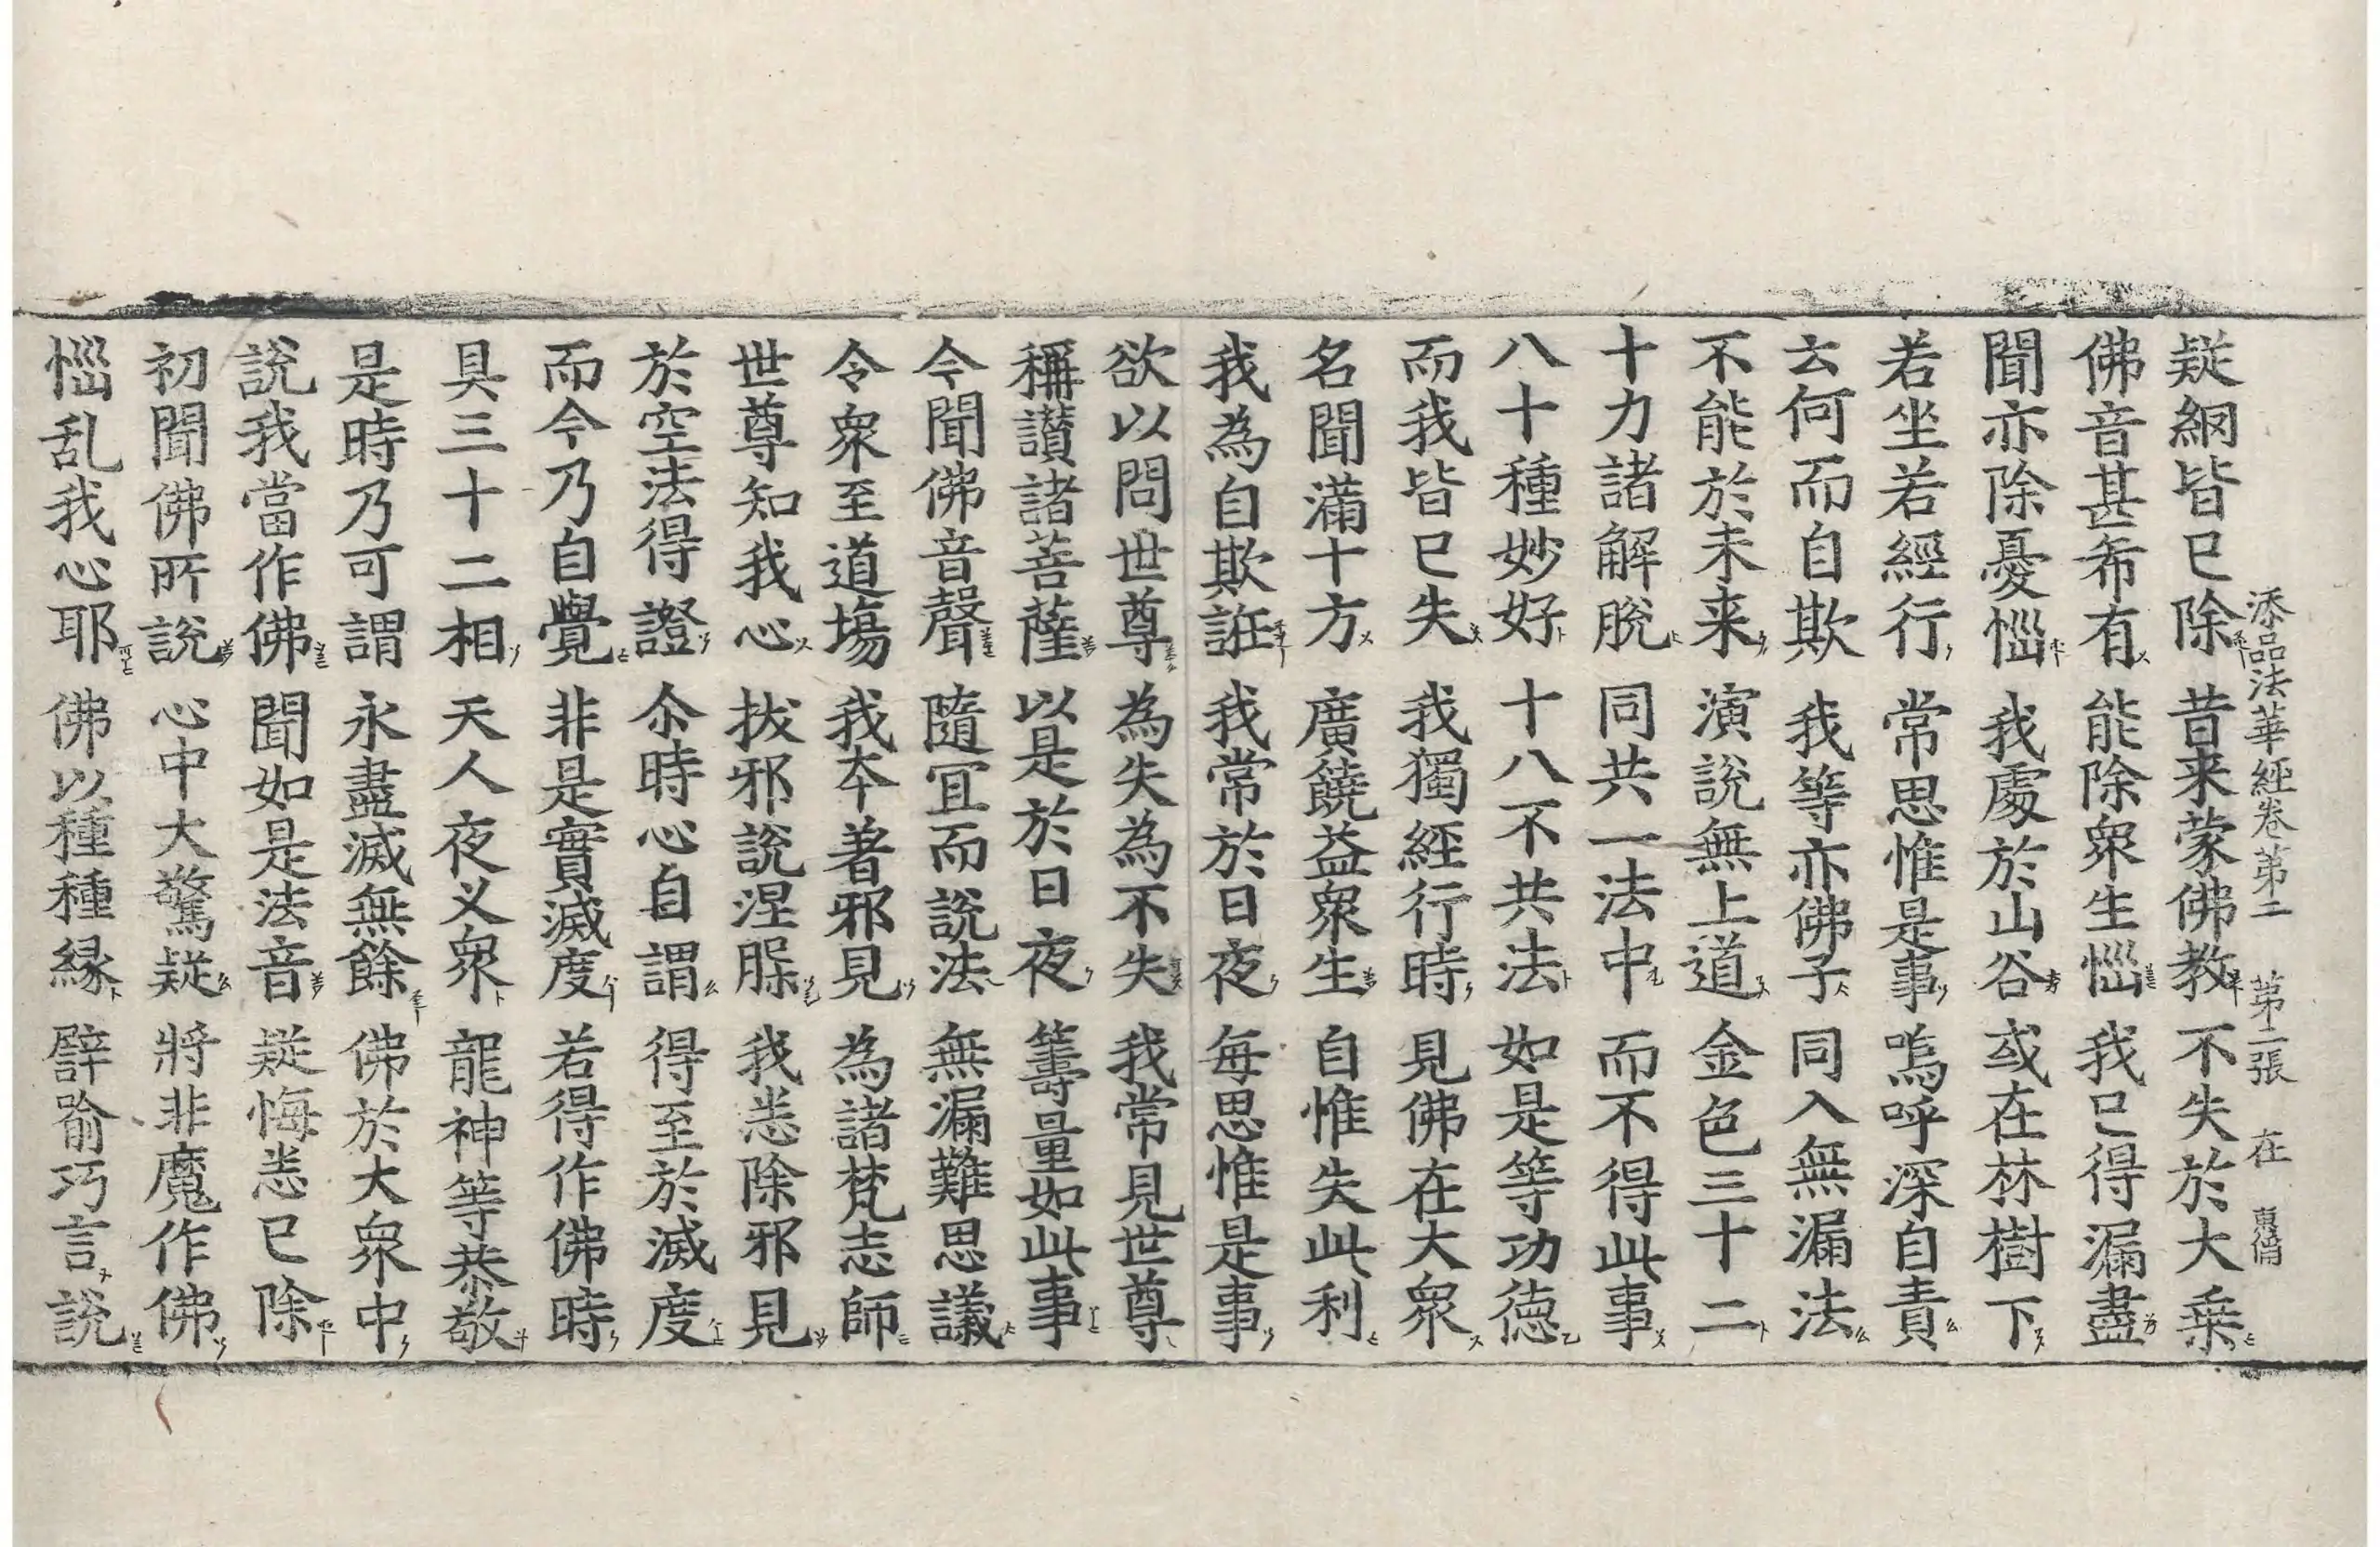 添品法華經卷第二 第二張 在
疑網皆已除 昔来蒙佛教 不失於大乗
佛音甚希有 能除衆生惱 我已得漏盡
聞亦除憂惱 我處於山谷 或在林樹下
若坐若經行 常思惟是事 嗚呼深自責
云何而自欺 我等亦佛子 同入無漏法
不能於未来 演說無上道 金色三十二
十力諸解脫 同共一法中 而不得此事
八十種妙好 十八不共法 如是等功德
而我皆已失 我獨經行時 見佛在大衆
名聞滿十方 廣饒益衆生 自惟失此利
我為自欺誑 我常於日夜 每思惟是事
欲以問世尊 為失為不失 我常見世尊
稱讃諸菩薩 以是於日夜 籌量如此事
今聞佛音聲 隨冝而說法 無漏難思議
令衆至道場 我本著邪見 為諸梵志師
世尊知我心 拔邪說涅槃 我悉除邪見
於空法得證 尒時心自謂 得至於滅度
而今乃自覺 非是實滅度 若得作佛時
具三十二相 天人夜义衆 龍神等恭敬
是時乃可謂 永盡滅無餘 佛於大衆中
說我當作佛 聞如是法音 疑悔悉已除
初聞佛所說 心中大驚疑 將非魔作佛
惱乱我心耶 佛以種種縁 譬喻巧言說